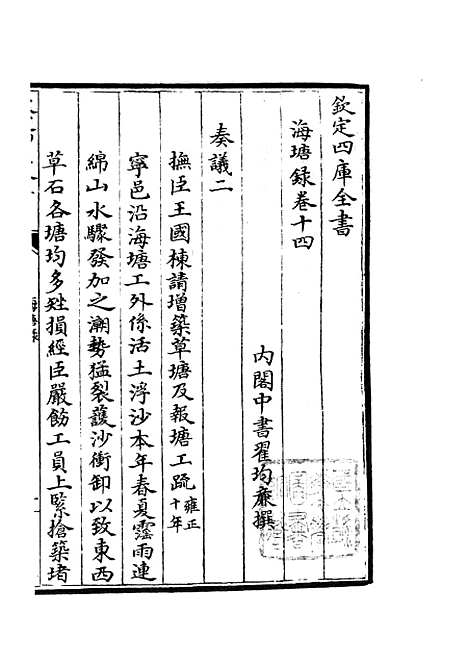 欽定四庫全書
海塘録卷十四
內閣中書翟均廉撰
奏議二
撫臣王國棟請增築草塘及報塘工疏雍正十年
寧邑沿海塘工外係活土浮沙本年春夏霪雨連
綿山水驟發加之潮勢猛裂護沙衝卸以致東西
草石各塘均多姓損經臣嚴飭工員上緊搶築堵